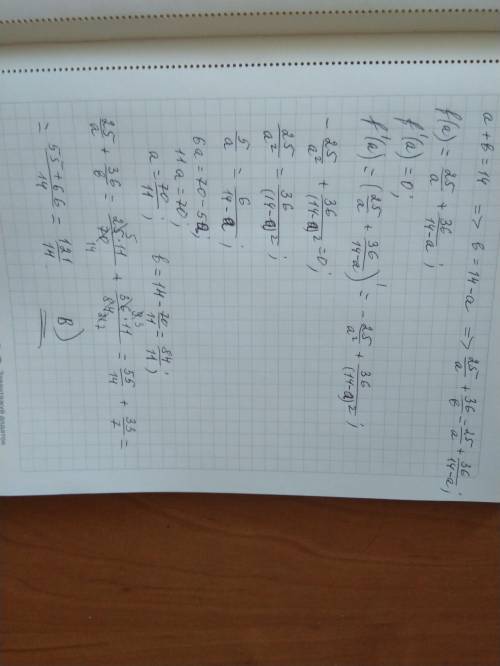 a + b = 14 => b = 14 - a => 25/a + 36/b = 25/a + 36/(14-a);
f(a) = 25/a + 36/(14-a);
f'(a) = 0;
f'(a) = (25/a + 36/(14-a))' = - 25/a² + 36/(14-a)²;
- 25/a² + 36/(14-a)² = 0;
25/a² = 36/(14-a)²;
5/a = 6/(14-a);
6a = 70 - 5a;
11a = 70;
a = 70/11; b = 14 - 70/11 = 84/11;
25/a + 36/b = 25·11/70 + 36·11/84 = 55/14 + 33/7 =
= (55 + 66)/14 = 121/14. B)